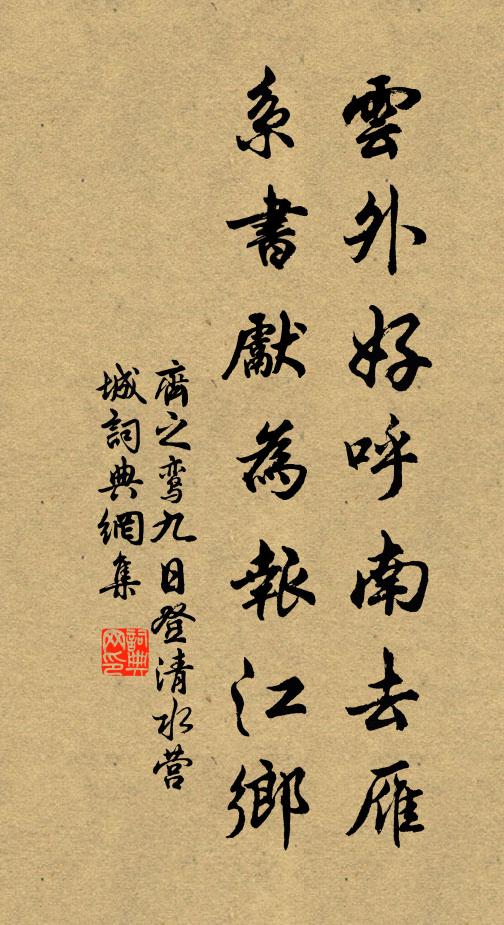 雲外好呼南去雁
系書獻為報江鄉
齊之鸾九日登清水营
城詞典網集
詞典网印